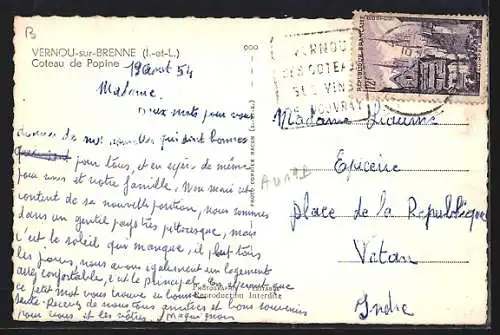 B
VERNOU-sur-BRENNE (I.-et-L.)
Coteau de Popine
19 Août 54
Madame,
Deux mots pour vous
donner de nos nouvelles qui sont bonnes
pour tous, et en espère de même
pour vous et votre famille. Mon mari est
content de sa nouvelle position, nous sommes
dans un gentil pays très pittoresque, mais
c'est le soleil qui manque, il pleut tous
les jours, nous avons également un logement
assez confortable, c'est le principal. En espérant que
ce petit mot vous trouve en bonne
santé. Recevez de nous tous amitiés et bons souvenirs
pour vous et les vôtres.
Fabrication Française
Reproduction Interdite
VERNOU
SES COTEAUX
SES VINS
DE VOUVRAY
REPUBLIQUE FRANÇAISE
POSTES
12F
Madame
Epicerie
Place de la République
Vatan
Indre